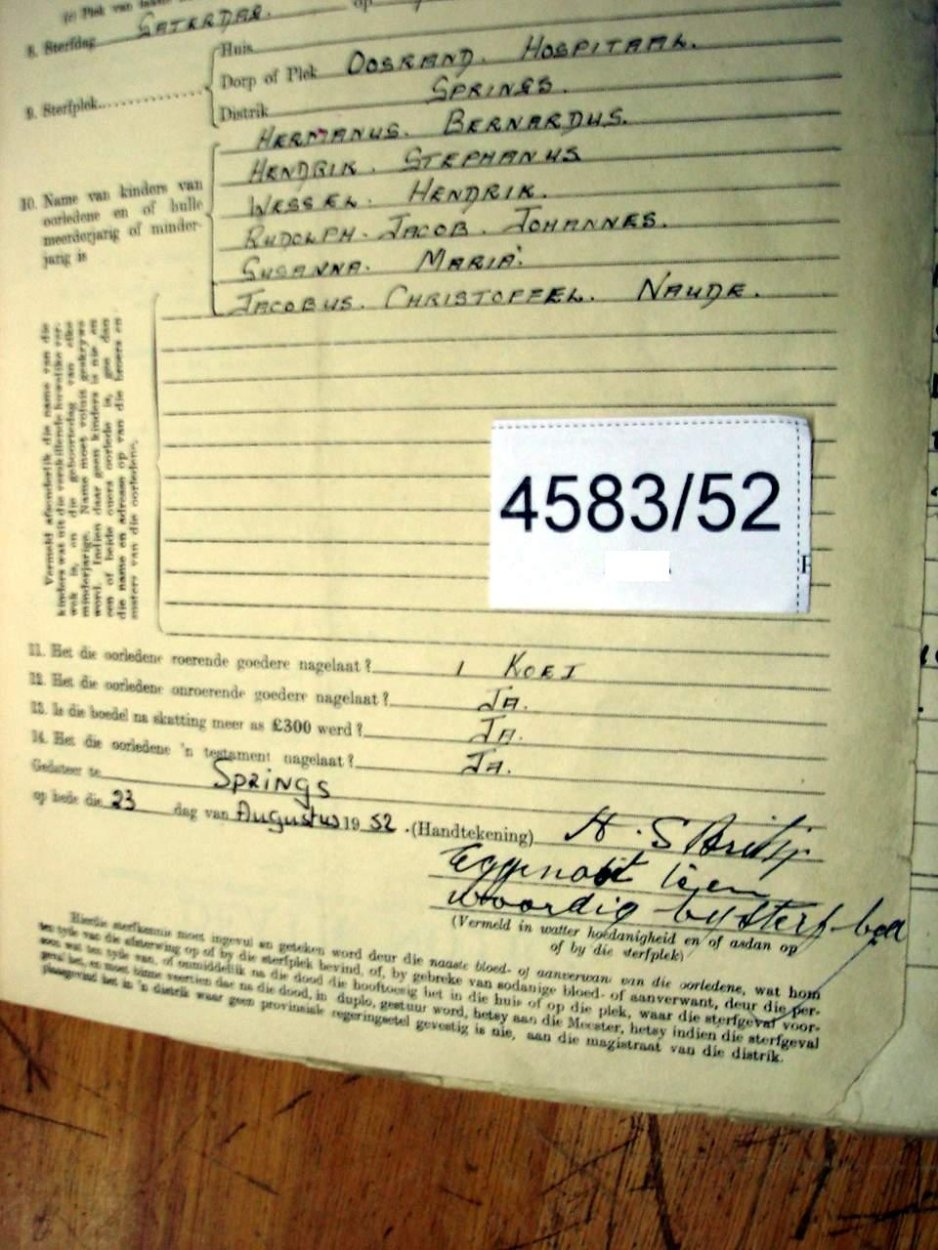 8. Sterfdag SATERDAG.
9. Sterfplek
Huis
Dorp of Plek OOSRAND. HOSPITAAL.
Distrik SPRINGS.
10. Name van kinders van
oorledene en of hulle
meerderjarig of minder-
jarig is
HERMANUS. BERNARDUS.
HENDRIK. STEPHANUS
WESSEL. HENDRIK.
RUDOLPH. JACOB. JOHANNES.
SUSANNA. MARIA.
JACOBUS. CHRISTOFFEL. NAUDE.
Vermeld afsonderlik die name van die
kinders wat uit die verskillende huwelike ver-
wek is, en die geboortedag van elke
minderjarige. Name moet voluit geskrywe
word. Indien daar geen kinders is nie en
een of beide ouers oorlede is, gee dan
die name en adresse op van die broers en
susters van die oorledene.
4583/52
11. Het die oorledene roerende goedere nagelaat? 1 KOEI
12. Het die oorledene onroerende goedere nagelaat? JA.
13. Is die boedel na skatting meer as £300 werd? JA.
14. Het die oorledene 'n testament nagelaat? JA.
Gedateer te SPRINGS
op hede die 23 dag van Augustus 19 52. (Handtekening) H. S
Eggenoot
woordig by sterf bed
(Vermeld in watter hoedanigheid en of asdan op
of by die sterfplek)
Hierdie sterfkennis moet ingevul en geteken word deur die naaste bloed- of aanverwant van die oorledene, wat hom
ten tyde van die afsterwing op of by die sterfplek bevind, of, by gebreke van sodanige bloed- of aanverwant, deur die per-
soon wat ten tyde van, of onmiddellik na die dood die hooftoesig het in die huis of op die plek, waar die sterfgeval voor-
geval het, en moet binne veertien dae na die dood, in duplo, gestuur word, hetsy aan die Meester, hetsy indien die sterfgeval
plaasgevind het in 'n distrik waar geen provinsiale regeringsetel gevestig is nie, aan die magistraat van die distrik.